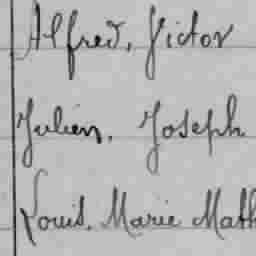 Alfred, Victor
Julien, Joseph
Louis, Marie Math